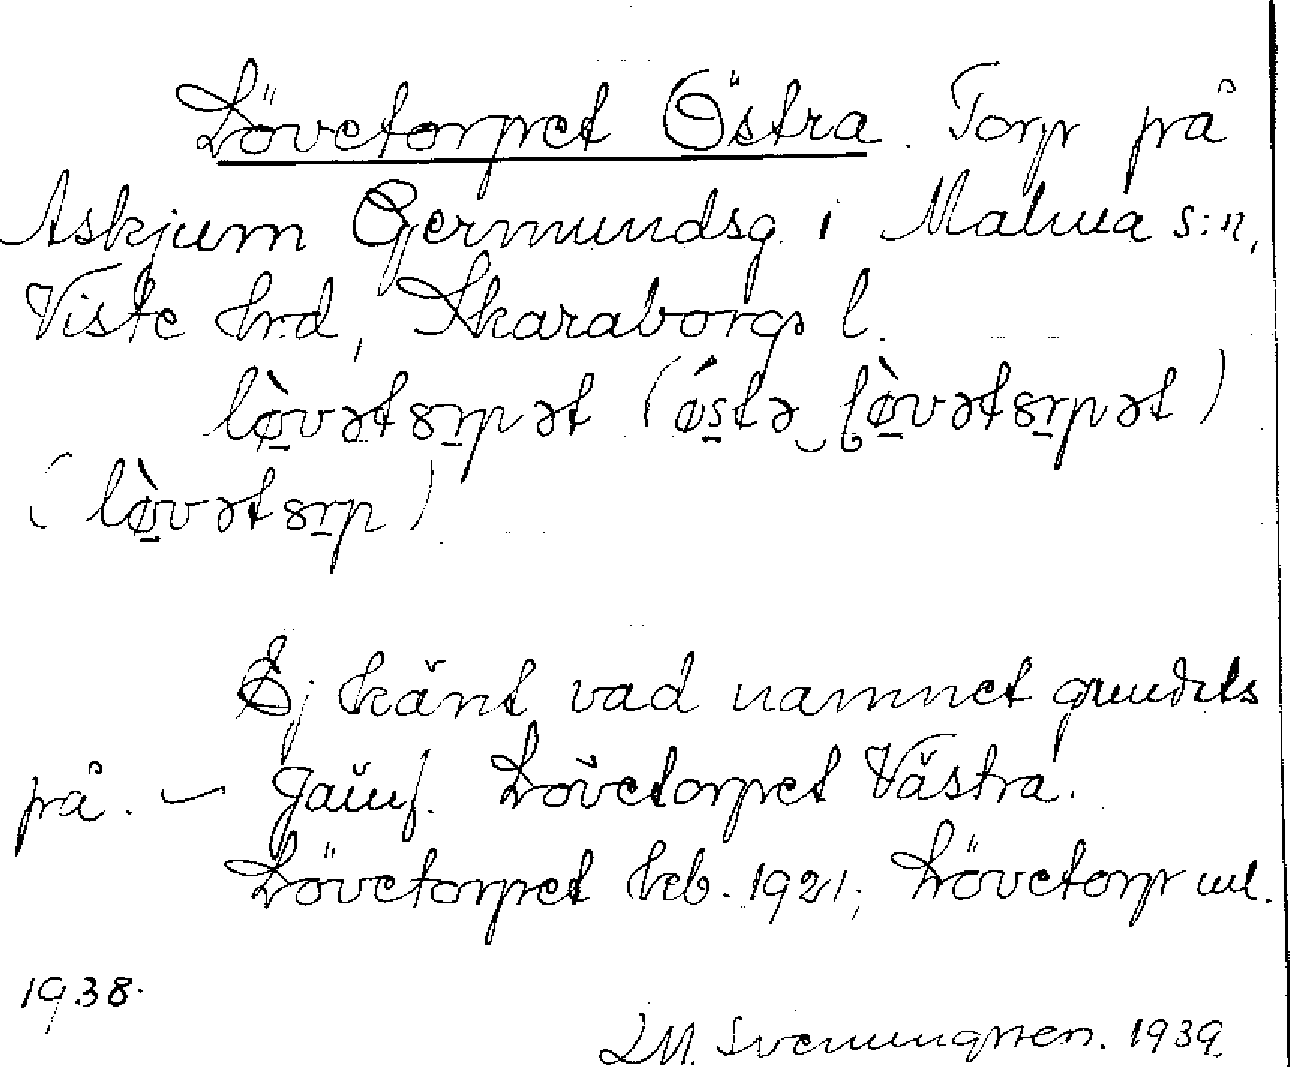 Lövetorpet Östra. Torp på
Askjum Germundsg. i Malma s:n,
Viste hrd, Skaraborgs l.
lø̀vətɞrpət (ǿstə‿lø̀vətɞrpət)
(lø̀vətɞrp)
Ej känt vad namnet grundats
på. — Jämf. Lövetorpet Västra.
Lövetorpet kb. 1921; Lövetorp ml.
1938.
LM. Svenungsson. 1939